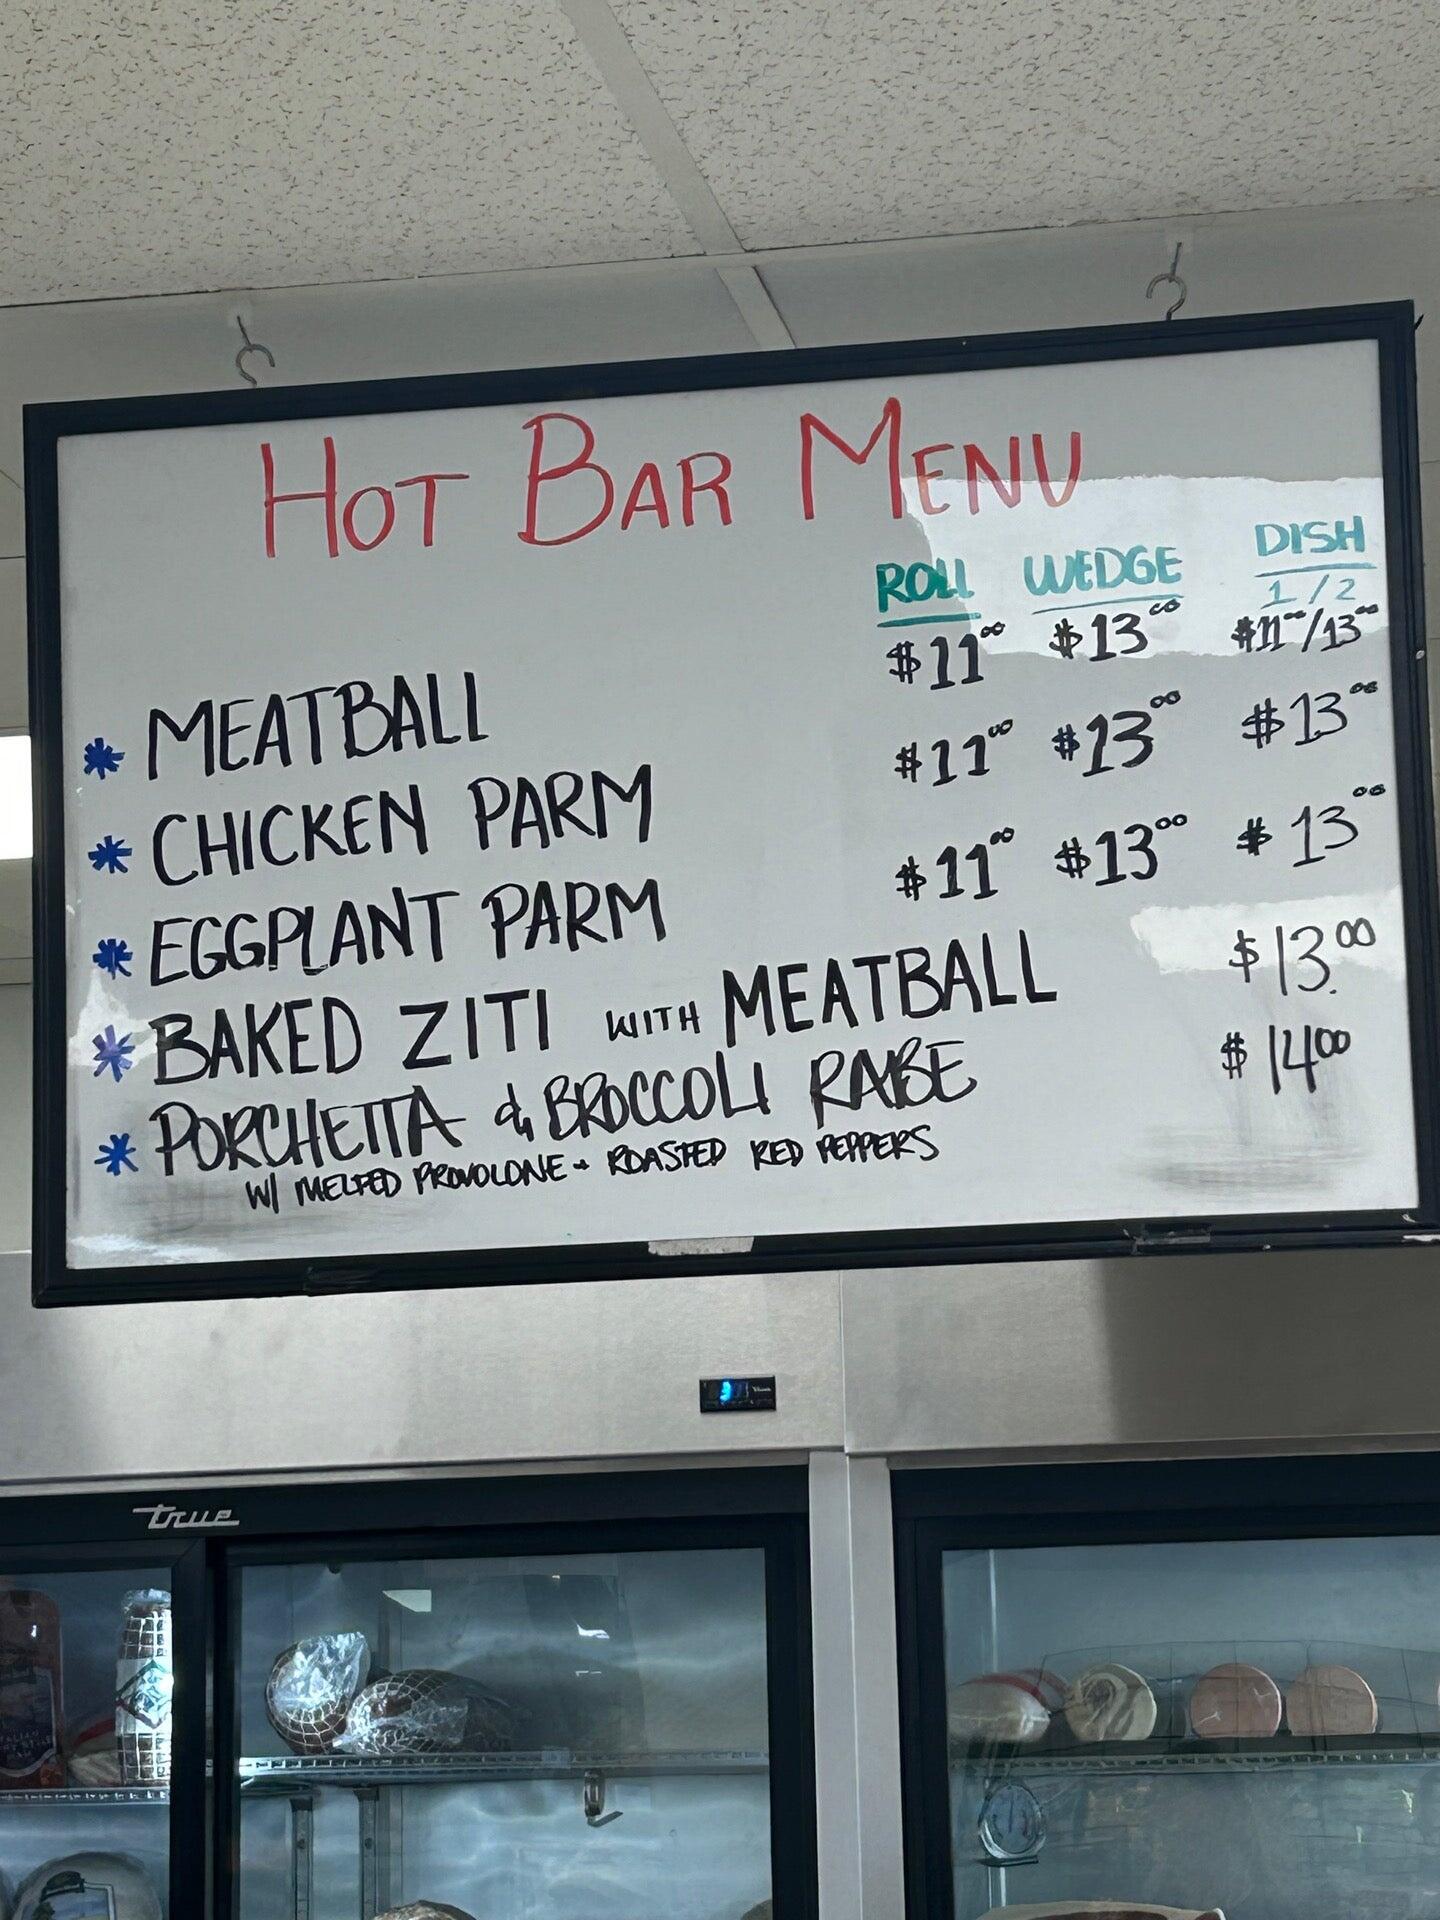 HOT BAR MENU
ROLL WEDGE DISH
1/2
* MEATBALL $11⁰⁰ $13⁰⁰ $11⁰⁰/13⁰⁰
* CHICKEN PARM $11⁰⁰ $13⁰⁰ $13⁰⁰
* EGGPLANT PARM $11⁰⁰ $13⁰⁰ $13⁰⁰
* BAKED ZITI WITH MEATBALL $13.⁰⁰
* PORCHETTA & BROCCOLI RABE $14⁰⁰
W/ MELTED PROVOLONE + ROASTED RED PEPPERS
true